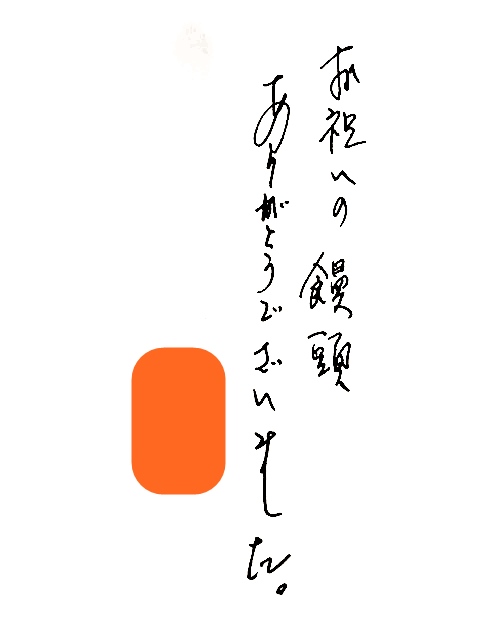 お祝いの饅頭
ありがとうございました。